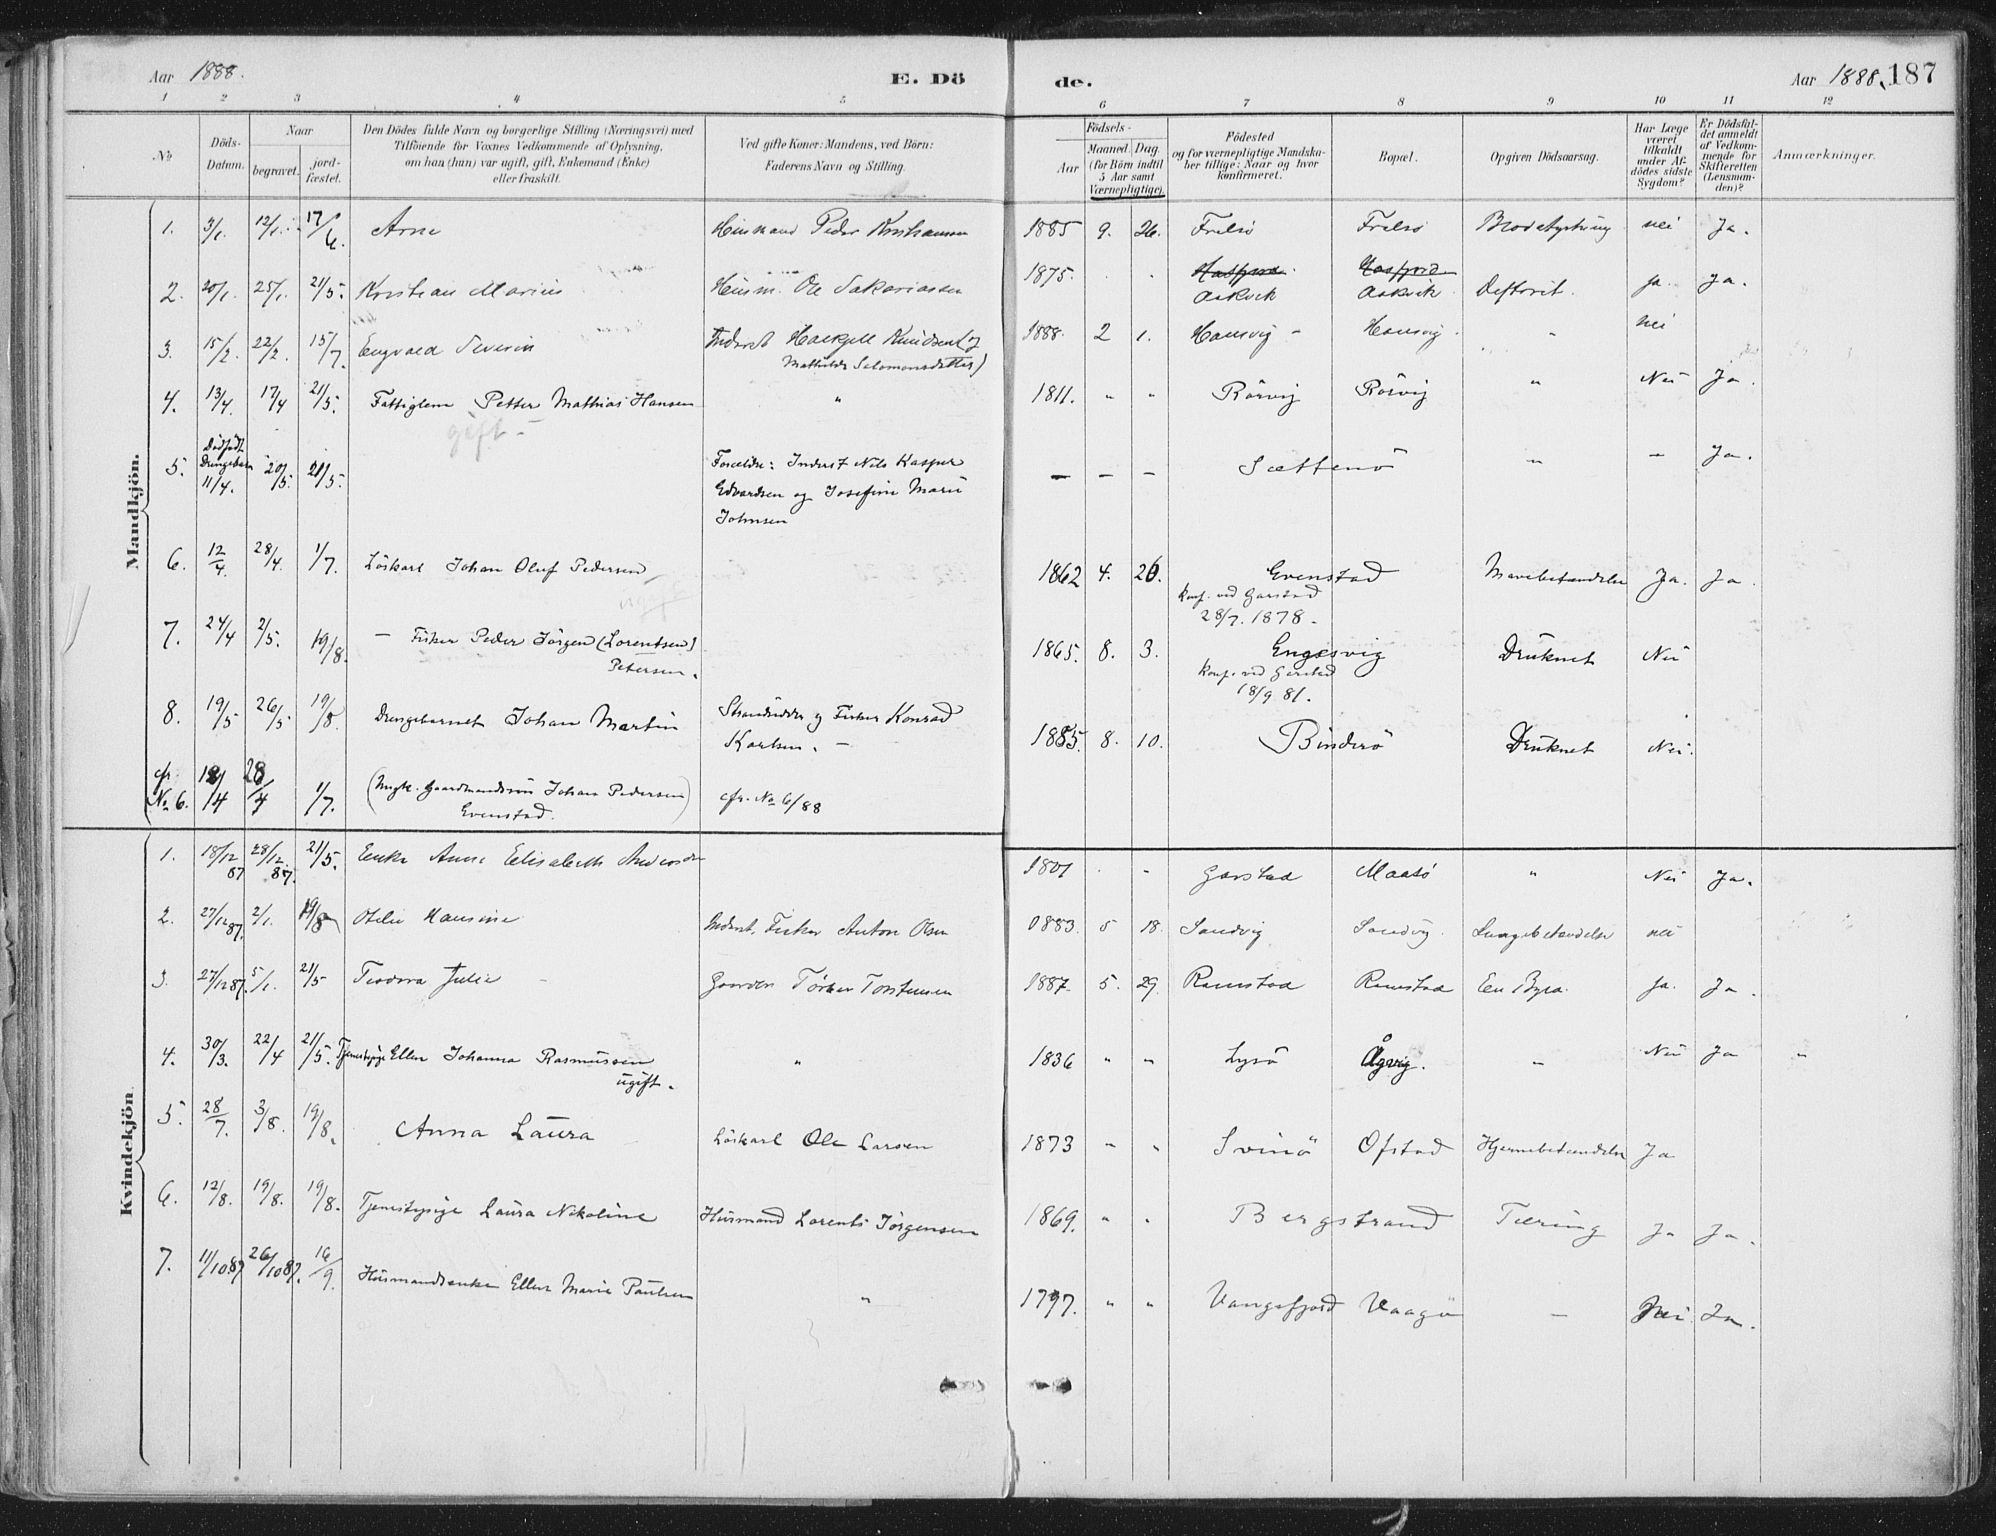 Aar 1888.
E. Dö
de.
Aar 1888. 187
1 2 3 4 5 6 7 8 9 10 11 12
No
Döds-Datum.
Naar
begravet.
jord-fæstet.
Den Dödes fulde Navn og borgerlige Stilling (Næringsvei) med
Tilföiende for Voxnes Vedkommende af Oplysning,
om han (hun) var ugift, gift, Enkemand (Enke)
eller fraskilt.
Ved gifte Koner: Mandens, ved Börn:
Faderens Navn og Stilling.
Födsels-
Aar
Maaned. Dag.
(for Börn indtil
5 Aar samt
Værnepligtige).
Födested
og for værnepligtige Mandska-
ber tillige: Naar og hvor
konfirmeret.
Bopæl.
Opgiven Dödsaarsag.
Har Læge
været
tilkaldt
under Af-
dödes sidste
Sygdom?
Er Dödsfal-
det anmeldt
af Vedkom-
mende for
Skifteretten
(Lensman-
den)?
Anmærkninger.
Mandkjön.
1. 3/1. 12/1. 17/6. Arne Husmand Peder Kristiansen 1885 9. 26. Frelsö Frelsö nei Ja.
2. 20/1. 25/1. 21/5. Kristian Marius Husm. Ole Sakariassen 1875. Aakvik Aakvik ja. Ja.
3. 15/2. 22/2. 15/7. Engvald Severin Inderst Knudsen (og
Mathilde Salomonsdatter) 1888. 2 1. Hansvig - Hansvig. " nei
4. 13/4. 17/4 21/5. Fattiglem Petter Mathias Hansen " 1811. " " Rörvig Rörvig " Nei Ja.
gift -
5. Dödfödt
Drengebarn
11/4. 20/5. 21/5. Forældre: Inderst Nils Kasper
Edvardsen og Josefine Marie
Johnsen — — — Sættenö " — Ja.
6. 12/4. 28/4. 1/7. Löskarl Johan Oluf Pedersen 1862 4. 26. Evenstad Mavebetændelse Ja. Ja.
Konf. ved Garstad
28/7. 1878.
7. 24/4 2/5. 19/8. — Fisker Peder Jörgen (Lorentsen)
Petersen. 1865. 8. 3. Engesvig Druknet Nei
Konf. ved Garstad
18/9 81.
8. 19/5 26/5 19/8. Drengebarnet Johan Martin Strandsidder og Fisker Konrad
Karlsen. — 1885. 8. 10. Binderö Druknet Nei.
cfr
No 6. 12/4 28/4 1/7. (Ungk. Gaardmandssön Johan Pedersen)
Evenstad. cfr. No 6/88
Kvindekjön
1. 18/12 87 28/12. 87. 21/5. Enke Anne Elisabeth 1801 " Garstad Maasö " Nei Ja.
2. 27/12 87. 2/1. 19/8 Otelie Hansine Inderst, Fisker Anton Olsen 1883. 5 18. Sandvig Sandvig. Lungebetændelse nei
3. 27/12 87. 5/1. 21/5 Teodora Julie Gaardm Torstensen 1887. 5. 29. Ramstad Ramstad Ja. Ja.
4. 30/3. 22/4 21/5. Tjenestepige Ellen Johanna Rasmussen
ugift. " 1836 " " Lysö Ågvig. — Nei Ja "
5. 28/7. 3/8. 19/8. Anna Laura Löskarl Ole Larsen 1873 " " Svinö Ofstad Hjernebetændelse Ja
6. 12/8. 19/8. 19/8. Tjenestepige Laura Nikoline Husmand Lorents Jörgensen 1869. " " Bergstrand Tæring Ja Ja.
7. 11/10 87 26/10 87. 16/9. Husmandsenke Ellen Marie Paulsen " 1797. " " Vangsfjord Vaagö — Nei Ja.